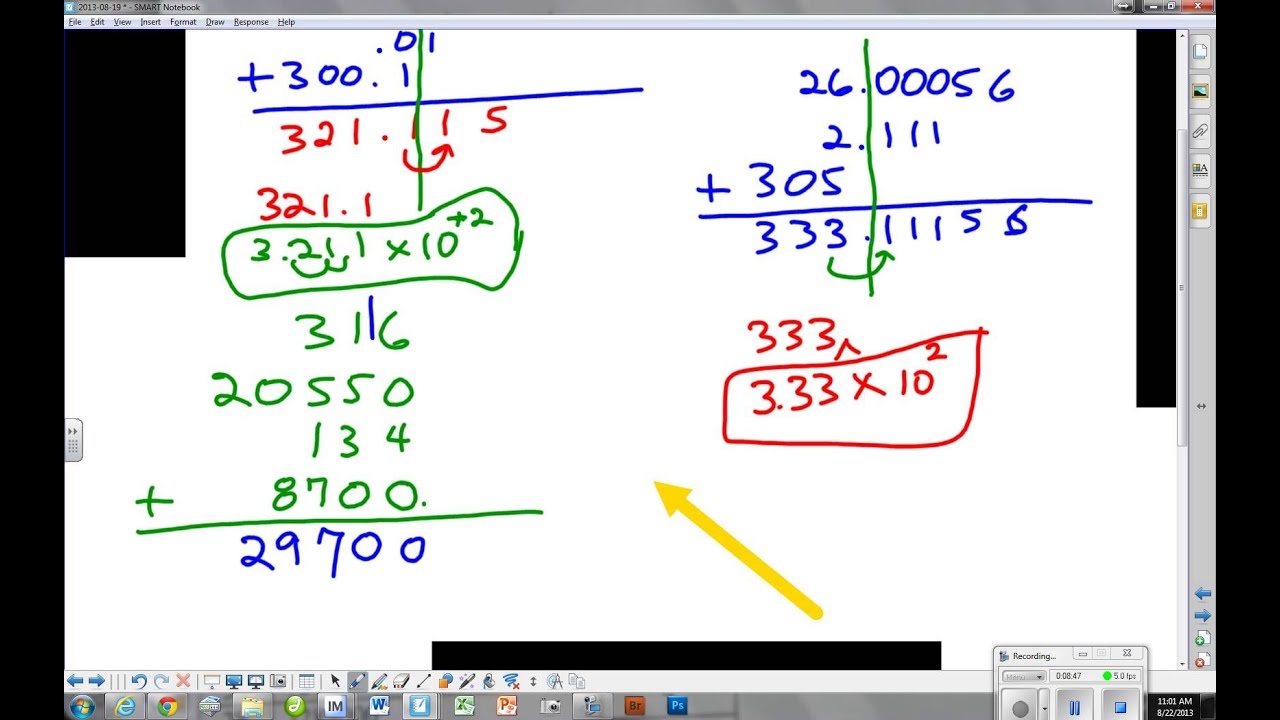 2013-08-19 * - SMART Notebook
File Edit View Insert Format Draw Response Help
.01
+300.1
321.115
321.1
3.211 x 10+2
316
20550
134
+ 8700.
29700
26.00056
2.111
+ 305
333.11156
333
3.33 x 10 2
Recording...
Menu
0:08:47 5.0 fps
IM Br Ps
11:01 AM
8/22/2013